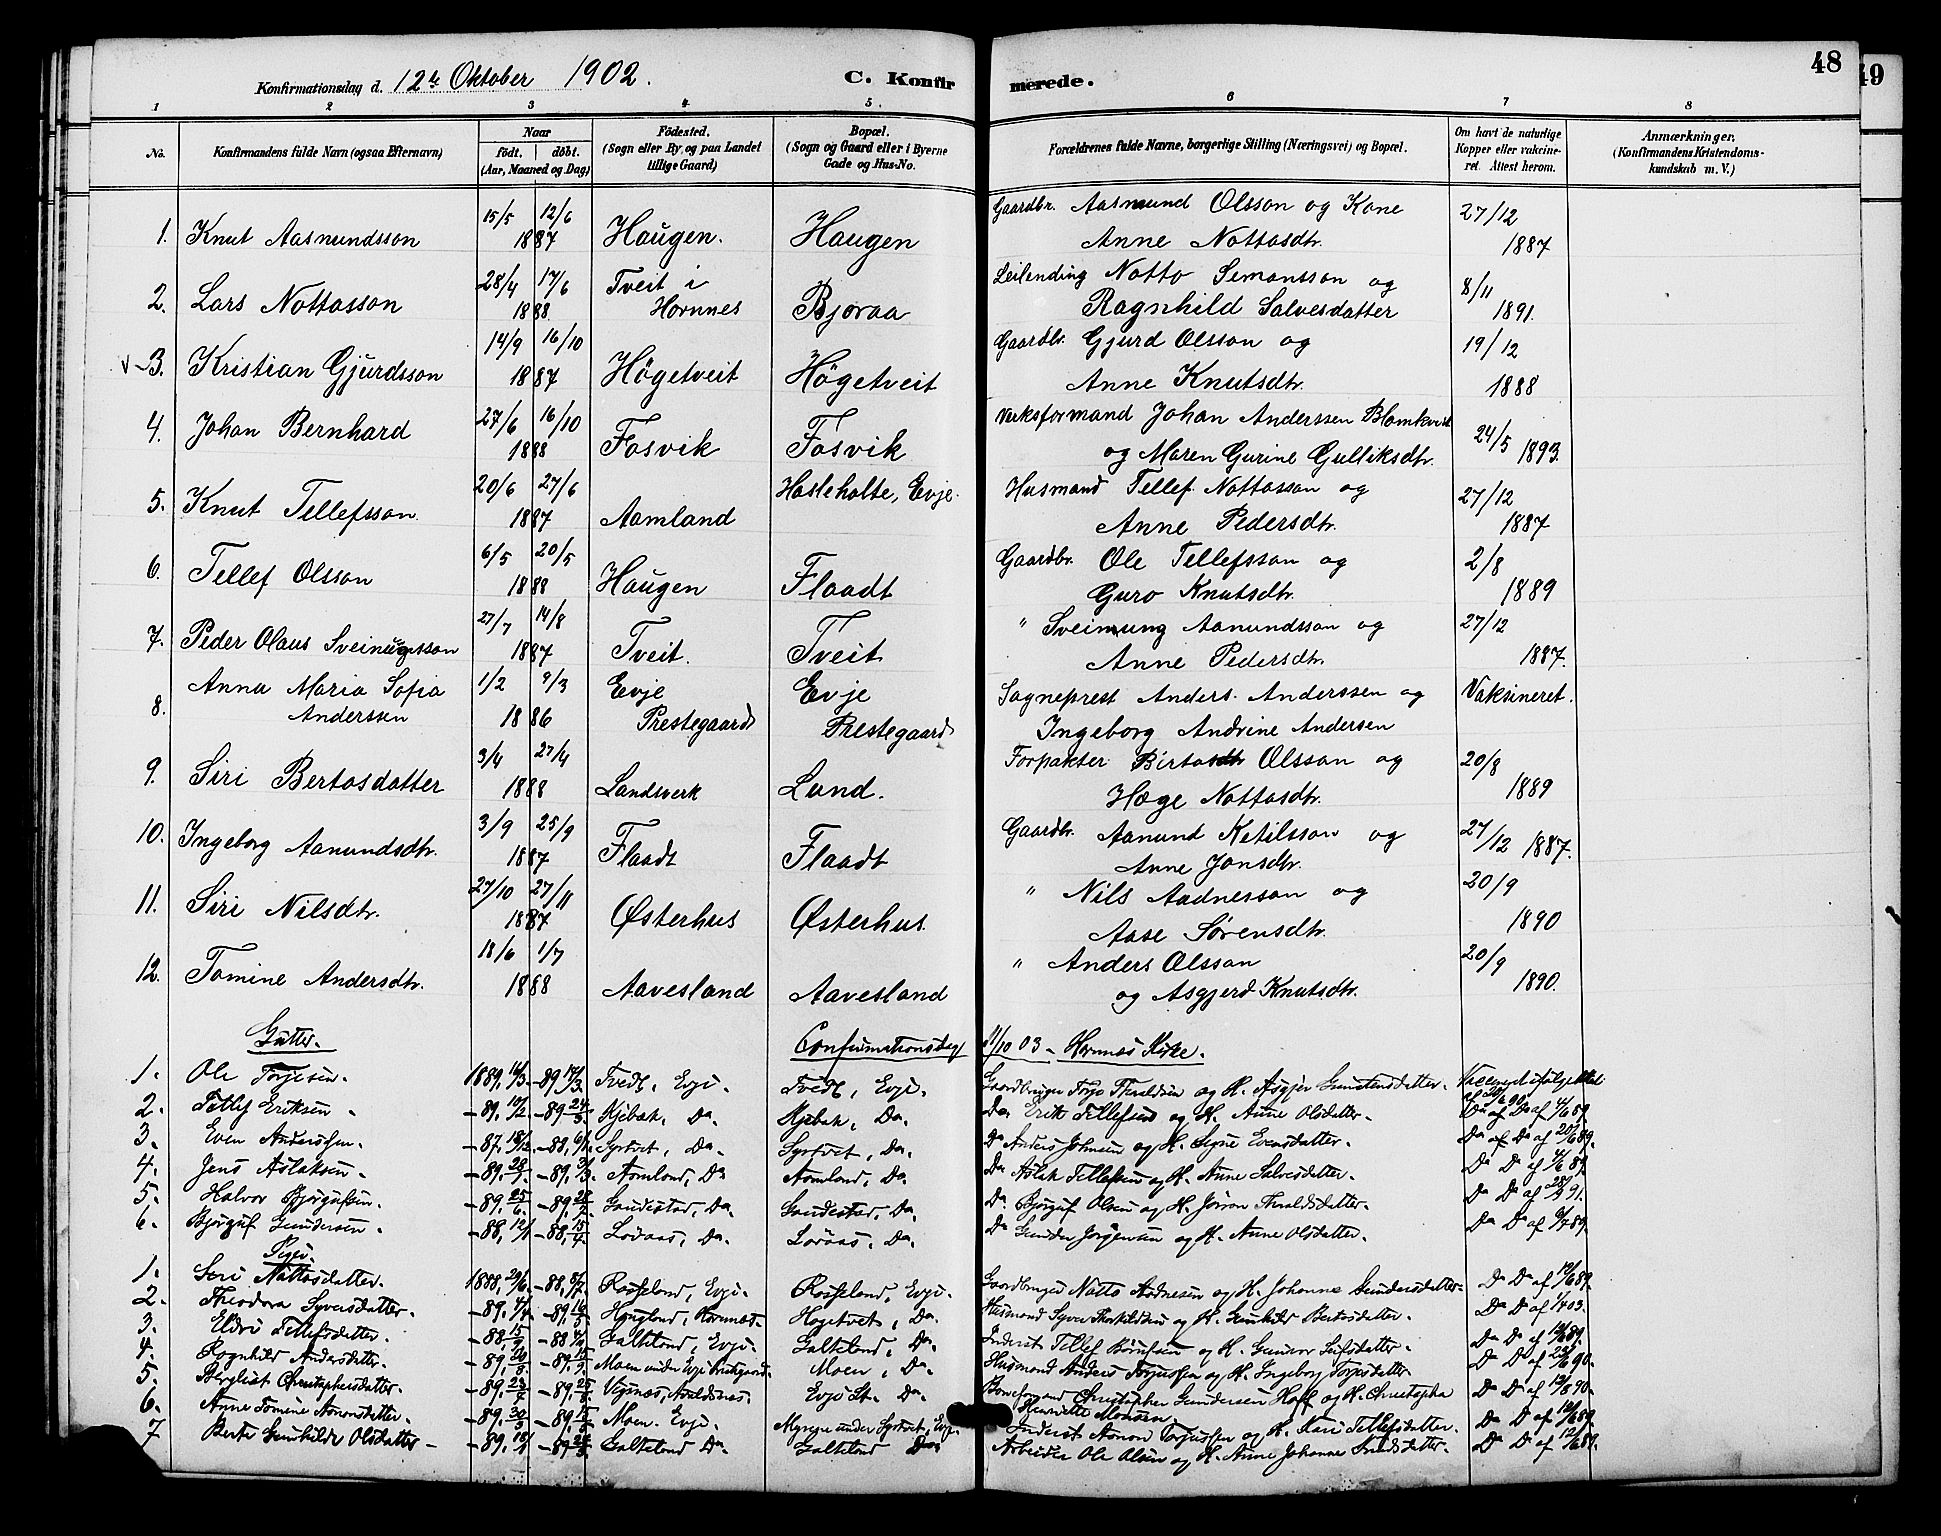 48
49
Konfirmationsdag d. 12te Oktober 1902. C. Konfirmerede.
1 2 3 4 5. 6 7 8
No. Konfirmandens fulde Navn (ogsaa Efternavn) Naar født. døbt. (Aar, Maaned og Dag) Fødested. (Sogn eller By, og paa Landet tillige Gaard) Bopæl. (Sogn og Gaard eller i Byerne Gade og Hus-No. Forældrenes fulde Navne, borgerlige Stilling (Næringsvei) og Bopæl. Om havt de naturlige Kopper eller vaksineret. Attest herom. Anmærkninger, (Konfirmandens Kristendomskundskab m. V.)
1. Knut Aasmundsson 15/5 12/6 1887 Haugen. Haugen Gaardbr. Aasmund Olsson og Kone Anne Nottosdtr. 27/12 1887
2. Lars Nottosson 28/4 17/6 1888 Tveit i Hornnes Bjoraa Leilending Notto Simonsson og Ragnhild Salvesdatter 8/11 1891.
3. Kristian Gjurdsson 14/9 16/10 1887 Högetveit Högetveit Gaardbr. Gjurd Olsson og Anne Knutsdtr. 19/12 1888
4. Johan Bernhard 27/6 16/10 1888 Fosvik Fosvik Verksformand Johan Anderssen Blomkvist og Maren Gurine Gulliksdtr. 24/5 1893.
5. Knut Tellefsson 20/6 27/6 1887 Aamland Hasleholte, Evje. Husmand Tellef Nottosson og Anne Pedersdtr. 27/12 1887
6. Tellef Olsson 6/5 20/5 1888 Haugen Flaadt Gaardbr. Ole Tellefsson og Guro Knutsdtr. 2/8 1889
7. Peder Olaus Sveinugsson 27/7 14/8 1887 Tveit. Tveit " Sveinung Aanundsson og Anne Pedersdtr. 27/12 1887.
8. Anna Maria Sofia Anderssen 1/2 9/3 1886 Evje Prestegaard Evje Prestegaard Sogneprest Anders. Anderssen og Ingeborg Andrine Andersen Vaksineret.
9. Siri Bertosdatter 3/4 27/4 1888 Landsverk Lund. Forpakter Birto Olsson og Hæge Nottosdtr. 20/8 1889
10. Ingeborg Aanundsdtr. 3/9 25/9 1887 Flaadt Flaadt Gaardbr. Aanund Ketilsson og Anne Jonsdtr. 27/12 1887.
11. Siri Nilsdtr. 27/10 27/11 1887 Østerhus Østerhus. " Nils Aadnesson og Aase Sørensdtr. 20/9 1890
12. Tomine Andersdtr. 18/6 1/7 1888 Aavesland Aavesland " Anders Olsson og Asgjerd Knutsdtr. 20/9 1890.
Gutter. Confirmationsdag 11/10 03 - Hornnes Kirke.
1. Ole Torjesen. 1889, -89 Tvedt, Evje. Tvedt, Evje. Gaardbruger Torje Theraldsen og H. Asgjer Gunstensdatter.
2. Tellef Eriksen -89, -89 Kjebæk, Do Kjebæk, Do. Do. Erik Tellefsen og H. Anne Olsdatter. Do af Do af 4/6 89.
3. Even Anderssen. -87, -88, Syrtvet, Do. Syrtvet, Do. Do Anders Johnsen og H. Signe Evensdatter. Do af Do af 20/6 89.
4. Jens Aslaksen. -89. -89, Aamland, Do Aamland, Do. Do. Aslak Tellefsen og H. Anne Salvesdatter. Do Do af 4/6 89.
5. Halvor Bjørgufsen. -89. 25/6 -89, Gaudestad, Do. Gaudestad, Do. Do. Bjørguf Olsen og H. Jøron Theraldsdatter. Do Do af 91.
6. Bjørguf Gundersen. -88, 12/1 -88, 15/4 Lövaas, Do. Lövaas, Do. Do Gunder Jørgensen og H. Anne Olsdatter. Do Do af 89.
Piger.
1. Seri Nottosdatter. 1888, 29/6 -88, 8/7 Rosseland, Evje. Rosseland, Evje. Gaardbruger Notto Aadnesen og H. Johanne Gundersdatter. Do Do af 89.
2. Theodora Syversdatter. -89, 4/4 -89, Haugland, Hornnes. Høgetvet, Do. Husmand Syver Therkildsen og H. Gunhild Bertosdatter. Do Do af 03.
3. Eldri Tellefsdatter. -88 15/9 -88 Galteland, Evje. Galteland, Do. Inderst Tellef og H. Gunvor Leifsdatter. Do Do af 89.
4. Ragnhild Andersdatter. -89, -89. Moen under Evje Prestegaard. Moen, Do. Husmand Anders Torjussen og H. Ingeborg Torjesdatter Do Do af 90.
5. Bergliot Christophersdatter. -89. 23/4 -89, Evje St. Do. Christopher Gundersen Hoff og H. Christopha Henriette Monsen. Do Do af 90.
6. Anne Tomine Aanonsdatter. -89. -89, Moen. Evje. Myregn under Syrtvet, Evje. Inderst Aanon Torjussen og H. Kari Tellefsdatter. Do Do af 89.
7 Berte Gunhilde Olsdatter -89. -89 Galteland Do. Galteland Do. Arbeider Ole Olsen og H. Anne Johanne Do Do af 12/6 89.